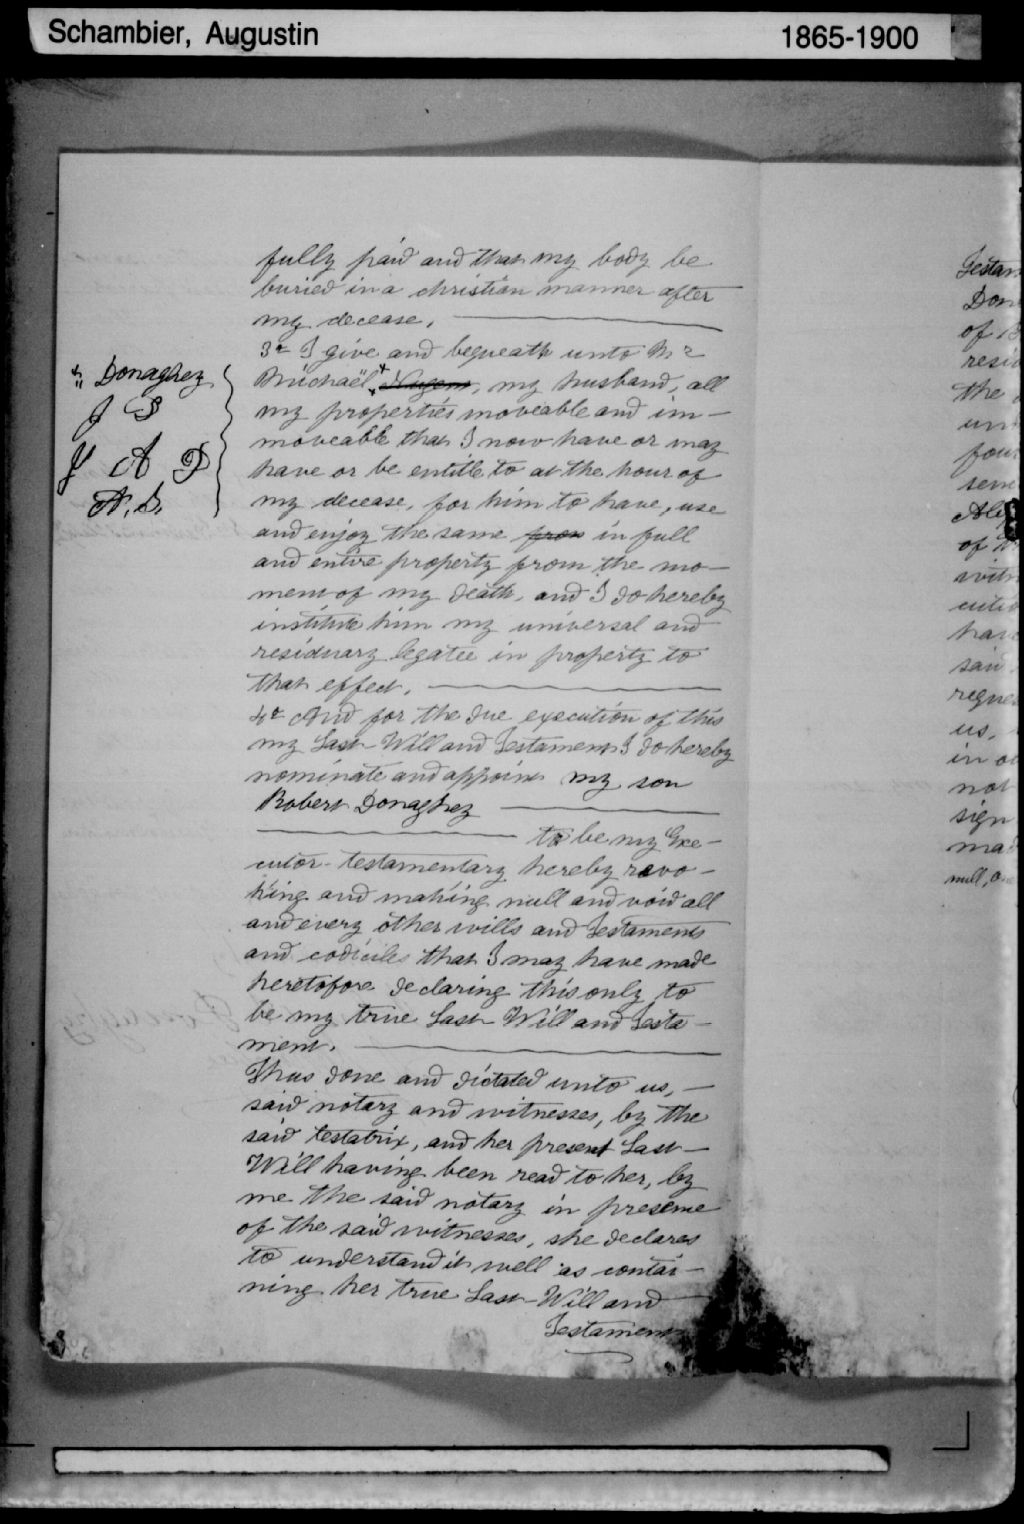 Schambier, Augustin 1865-1900
fully paid and that my body be
buried in a christian manner after
my decease.
3° I give and bequeath unto Mr
Michaël Nugent, my husband, all
my properties moveable and im-
moveable that I now have or may
have or be entitle to at the hour of
my decease, for him to have, use
and enjoy the same from in full
and entire property from the mo-
ment of my death, and I do hereby
institute him my universal and
residuary legatee in property to
that effect.
4° And for the due execution of this
my Last Will and Testament I do hereby
nominate and appoint my son
Robert Donaghey
to be my Exe-
cutor-testamentary hereby revo-
king and making null and void all
and every other wills and Testaments
and codiciles that I may have made
heretofore declaring this only to
be my true Last Will and Testa-
ment.
Thus done and dictated unto us,
said notary and witnesses, by the
said testatrix, and her present Last
Will having been read to her, by
me the said notary in presence
of the said witnesses, she declares
to understand it well as contai-
ning her true Last Will and
Testament
Donaghey
J S
J A P
A. S.
Testam
Don
of
resi
the
un
four
sem
of
witn
cuti
hav
said
reque
us,
in
not
sign
ma
null,